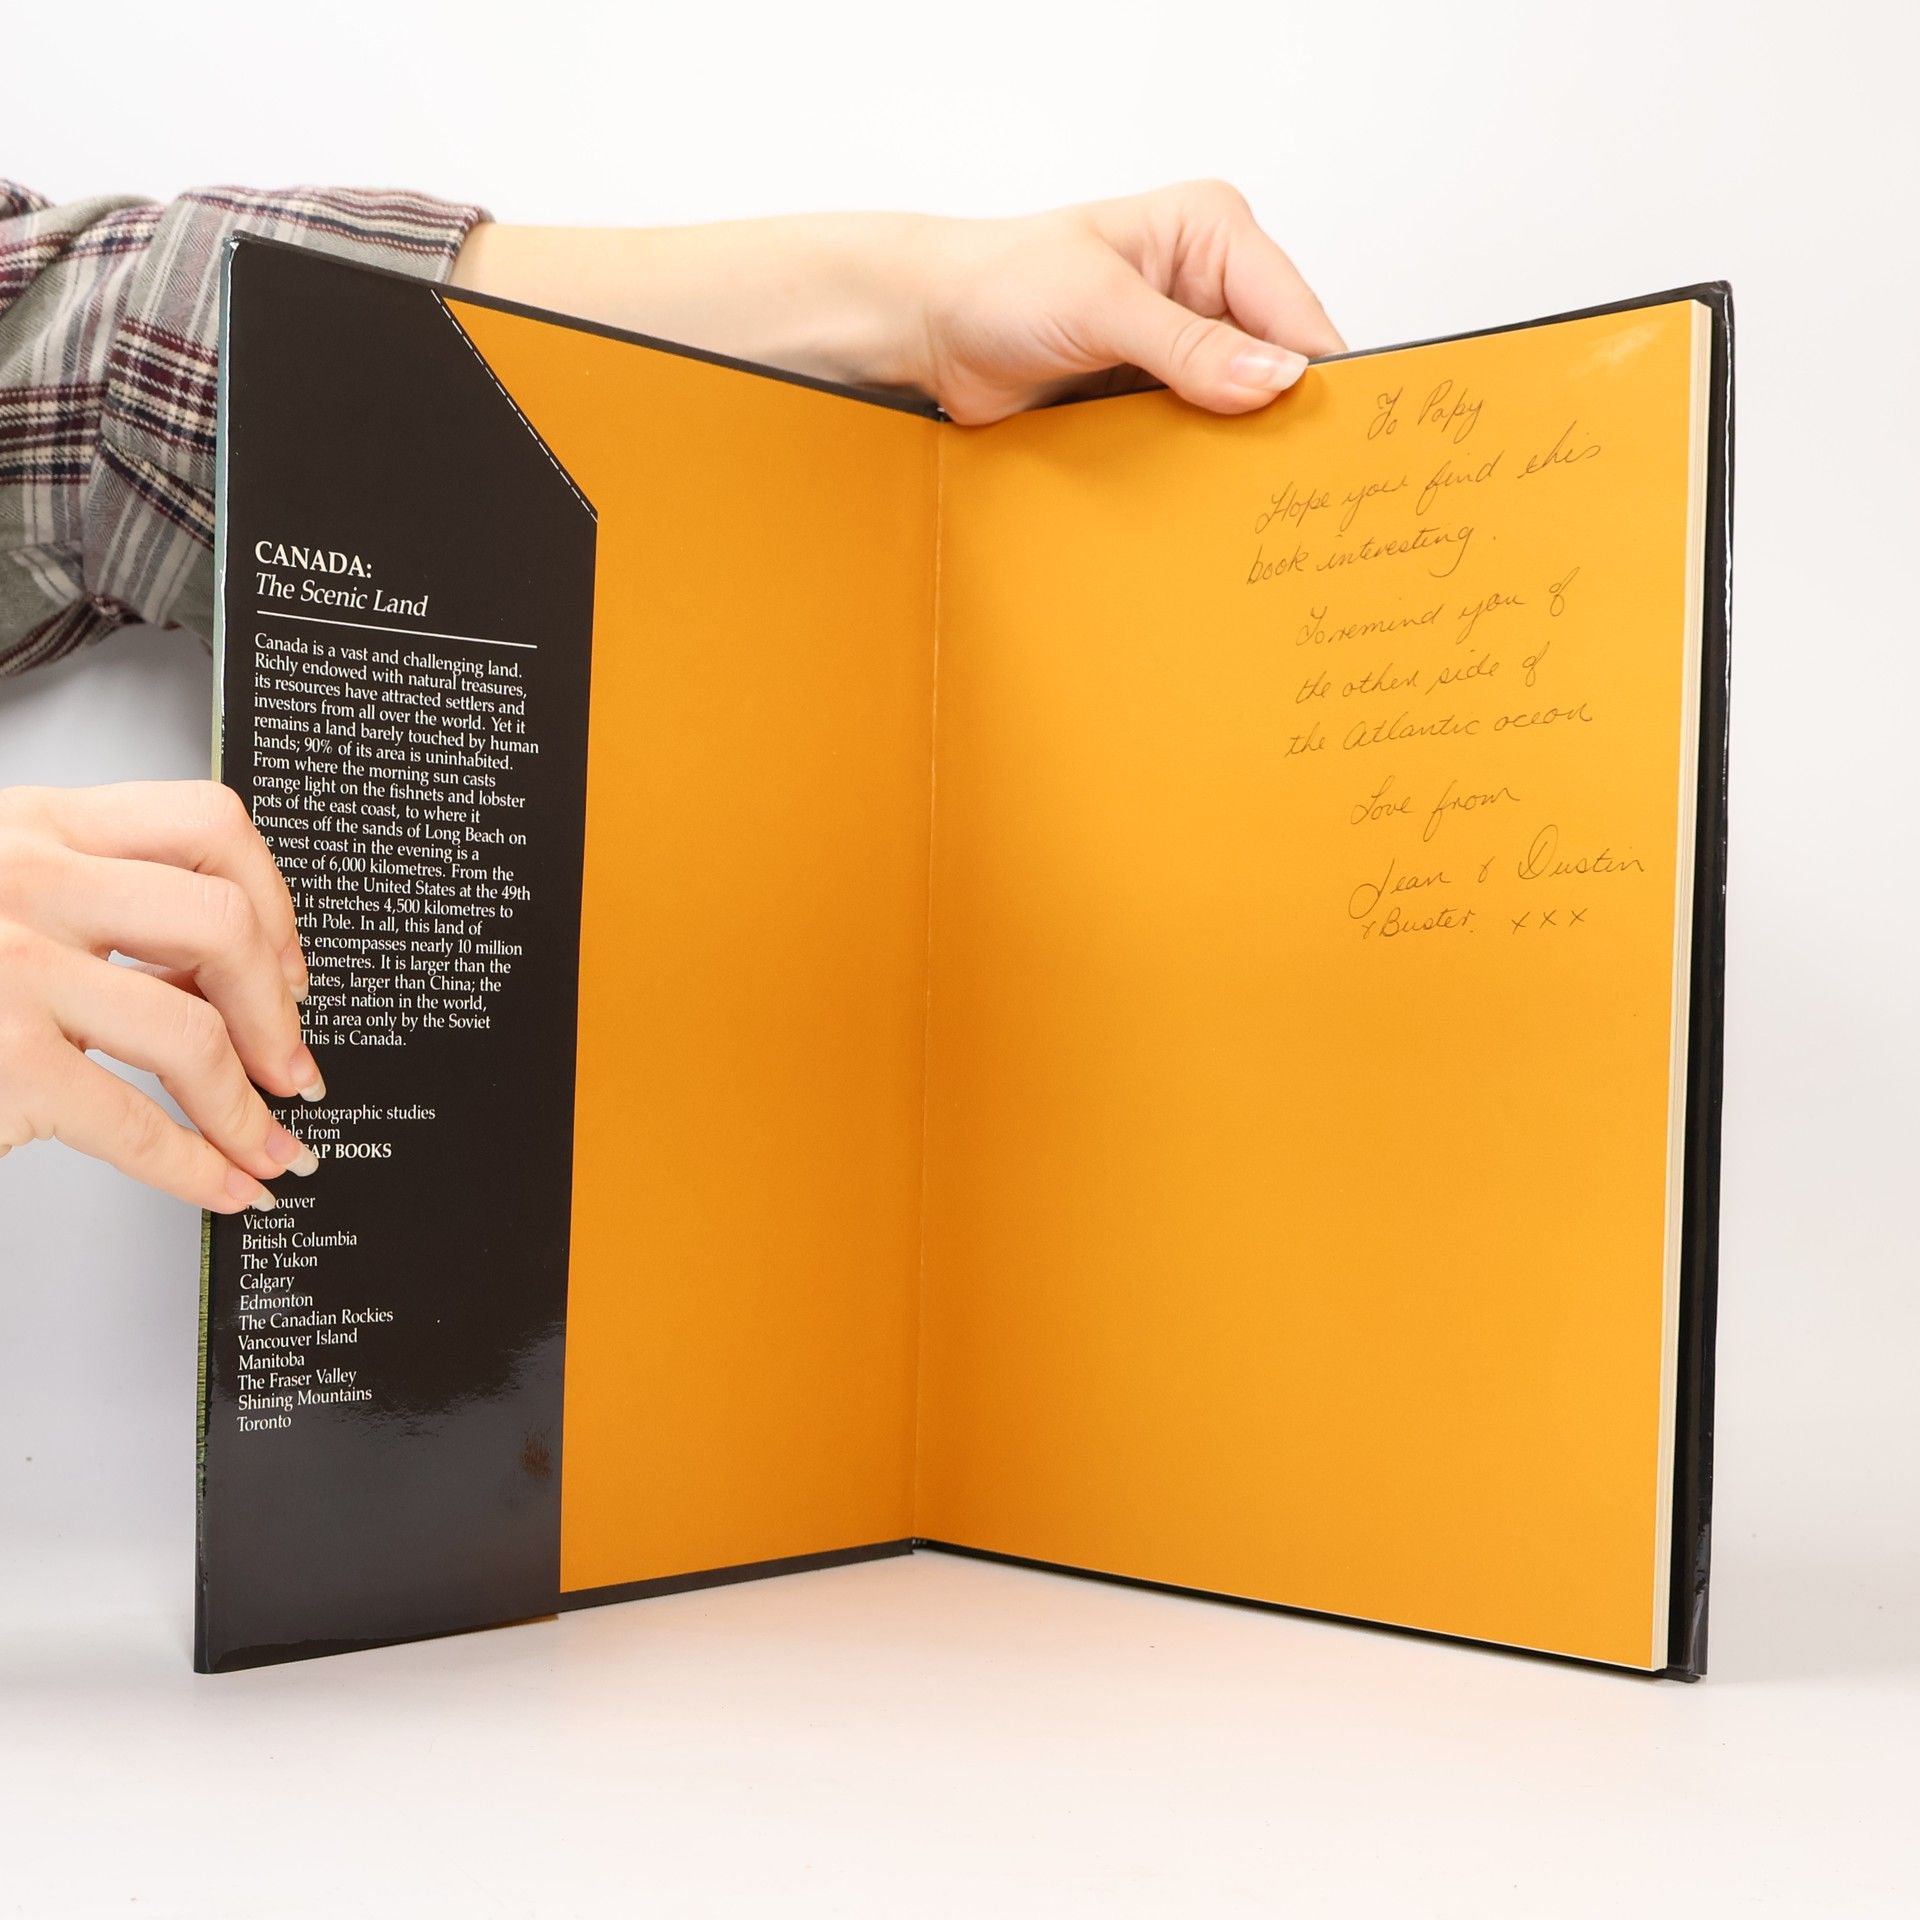 CANADA:
The Scenic Land
Canada is a vast and challenging land.
Richly endowed with natural treasures,
its resources have attracted settlers and
investors from all over the world. Yet it
remains a land barely touched by human
hands; 90% of its area is uninhabited.
From where the morning sun casts
orange light on the fishnets and lobster
pots of the east coast, to where it
bounces off the sands of Long Beach on
west coast in the evening is a
of 6,000 kilometres. From the
with the United States at the 49th
it stretches 4,500 kilometres to
Pole. In all, this land of
encompasses nearly 10 million
kilometres. It is larger than the
larger than China; the
largest nation in the world,
in area only by the Soviet
This is Canada.
photographic studies
from
BOOKS
Victoria
British Columbia
The Yukon
Calgary
Edmonton
The Canadian Rockies
Vancouver Island
Manitoba
The Fraser Valley
Shining Mountains
Toronto
To Papy
Hope you find this
book interesting.
To remind you of
the other side of
the Atlantic ocean
Love from
Jean & Dustin
& Buster. x x x